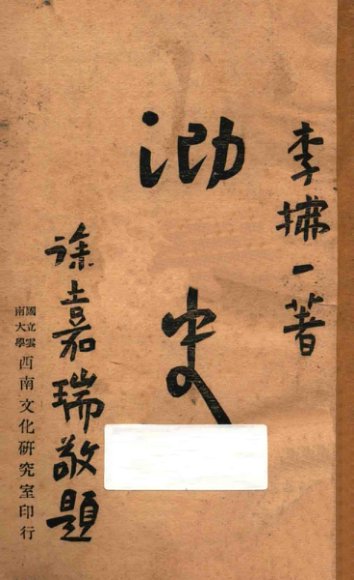 李拂一著
泐史
徐嘉瑞敬題
國立雲
南大學
西南文化研究室印行